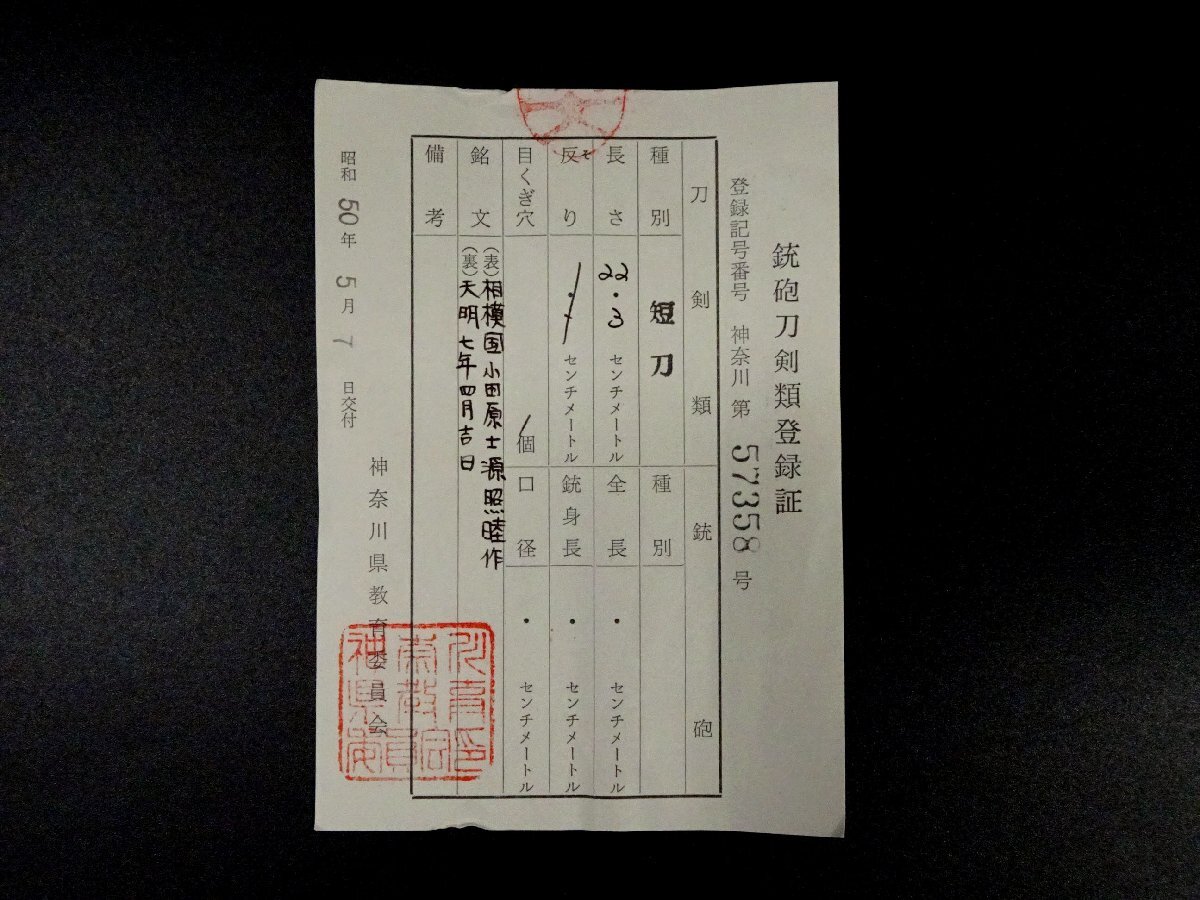 銃砲刀剣類登録証
登録記号番号 神奈川 第 57358 号
刀剣類
種別 短刀
長さ 22.3 センチメートル
反り そ センチメートル
目くぎ穴 1 個
銘文 (表) 相模国小田原士源照睦作
(裏) 天明七年四月吉日
備考
銃砲
種別
全長 ・ センチメートル
銃身長 ・ センチメートル
口径 ・ センチメートル
昭和 50 年 5 月 7 日交付
神奈川県教育委員会